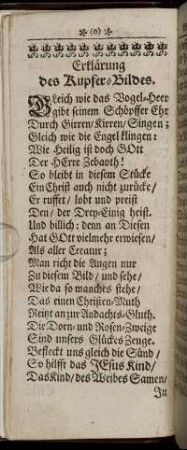 (o)
Erklärung
des Kupfer-Bildes.
Gleich wie das Vogel-Heer
gibt seinem Schöpffer Ehr
Durch Girren/Kirren/Singen;
Gleich wie die Engel klingen:
Wie Heilig ist doch GOtt
Der HErre Zebaoth!
So bleibt in diesem Stücke
Ein Christ auch nicht zurücke/
Er ruffet/ lobt und preist
Den/ der Drey-Einig heist.
Und billich: denn an Diesen
Hat GOtt vielmehr erwiesen/
Als aller Creatur;
Man richt die Augen nur
Zu diesem Bild/ und sehe/
Wie da so manches stehe/
Das einen Christen-Muth
Reitzt an zur Andachts-Gluth.
Die Dorn- und Rosen-Zweige
Sind unsers Glückes Zeuge.
Befleckt uns gleich die Sünd/
So hilfft das JEsus Kind/
Das Kind/ des Weibes Samen/
In